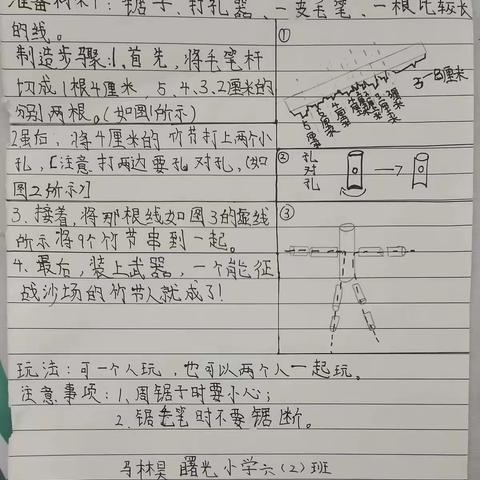 准备材料：锯子、打孔器、一支毛笔、一根比较长
的线。
制造步骤：1.首先，将毛笔杆
切成1根4厘米，5、4、3、2厘米的
分别两根。（如图1所示）
2.最后，将4厘米的竹节打上两个小
孔，【注意打两边要孔对孔，（如
图2所示）】
3.接着，将那根线如图3的虚线
所示将9个竹节串到一起。
4.最后，装上武器，一个能征
战沙场的竹节人就成了！
①
5厘米
5厘米
4厘米
3厘米
②
孔
对
孔
③
玩法：可一个人玩，也可以两个人一起玩。
注意事项：1、用锯子时要小心；
2.锯毛笔时不要锯断。
马林昊 曙光小学六（2）班